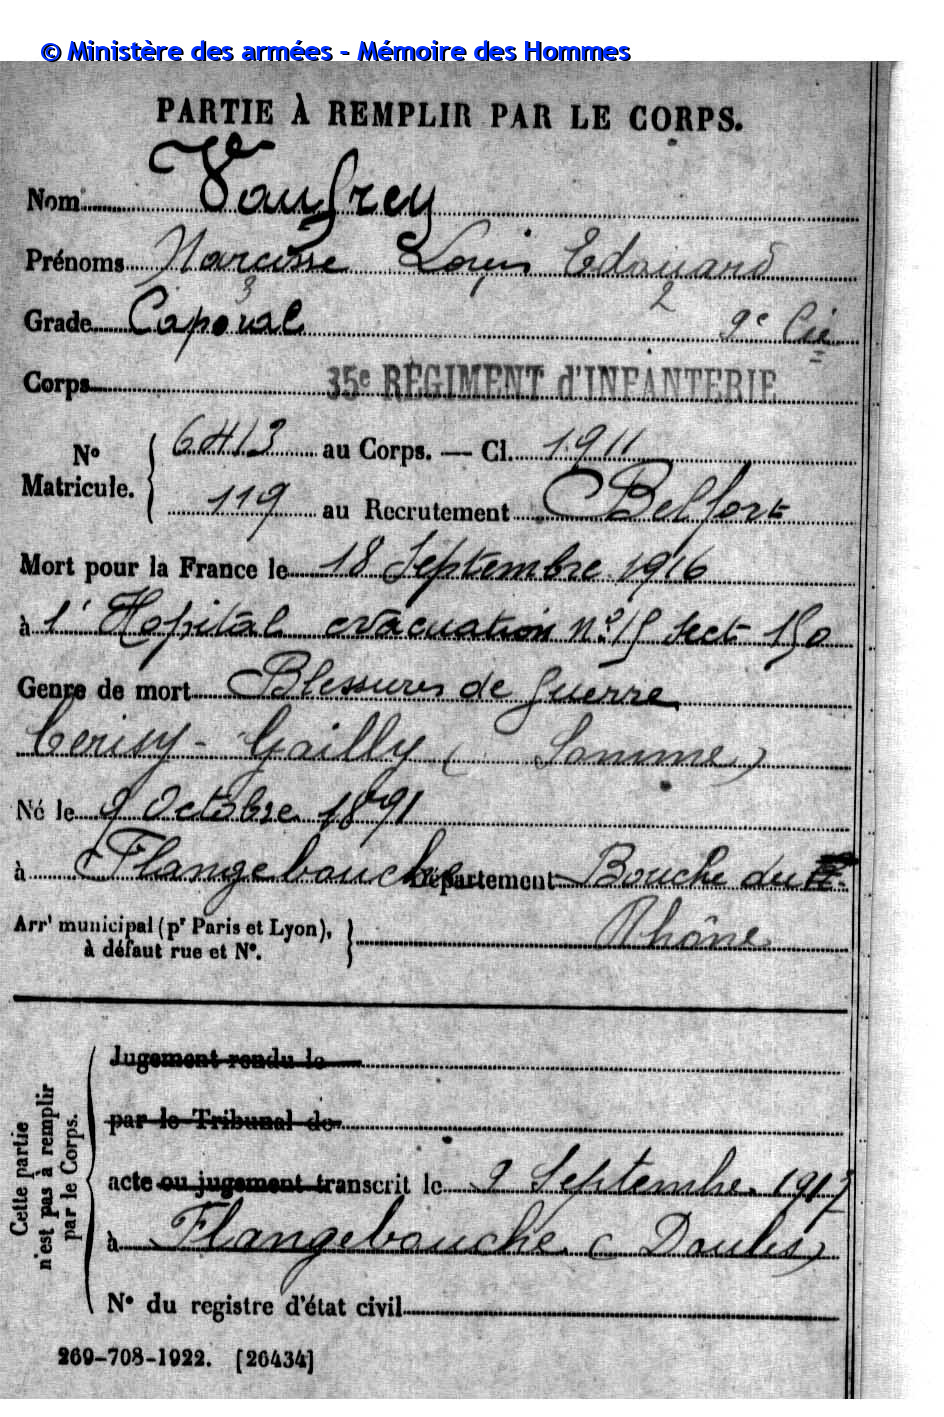 © Ministère des armées - Mémoire des Hommes
PARTIE À REMPLIR PAR LE CORPS.
Nom Vaufrey
Prénoms Narcisse Louis Edouard
3 2
Grade Caporal 9e Cie
Corps 35e RÉGIMENT d'INFANTERIE
No 6413 au Corps. — Cl. 1911
Matricule.
119 au Recrutement Belfort
Mort pour la France le 18 Septembre 1916
à l'Hopital evacuation n° 15 Sect 150
Genre de mort Blessures de Guerre
Cerisy-Gailly (Somme)
Né le 9 Octobre 1891
à Flangebouche Département Bouche du
Arrt municipal (pr Paris et Lyon),
à défaut rue et N°. Rhône
Cette partie
n'est pas à remplir
par le Corps.
Jugement rendu le
par le Tribunal de
acte ou jugement transcrit le 9 Septembre 1917
à Flangebouche (Doubs)
N° du registre d'état civil
269-708-1922. [26434]